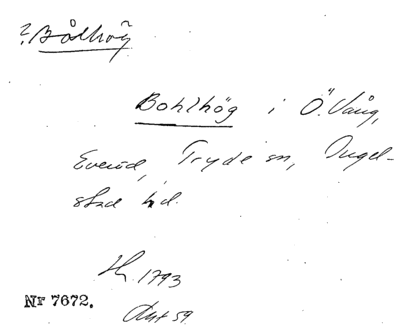 ? Bålhög
Bohlhög i Ö. Vång,
Everöd, Tryde sn, Ingel-
stad hd.
1793
Nr 7672.
Avt 59